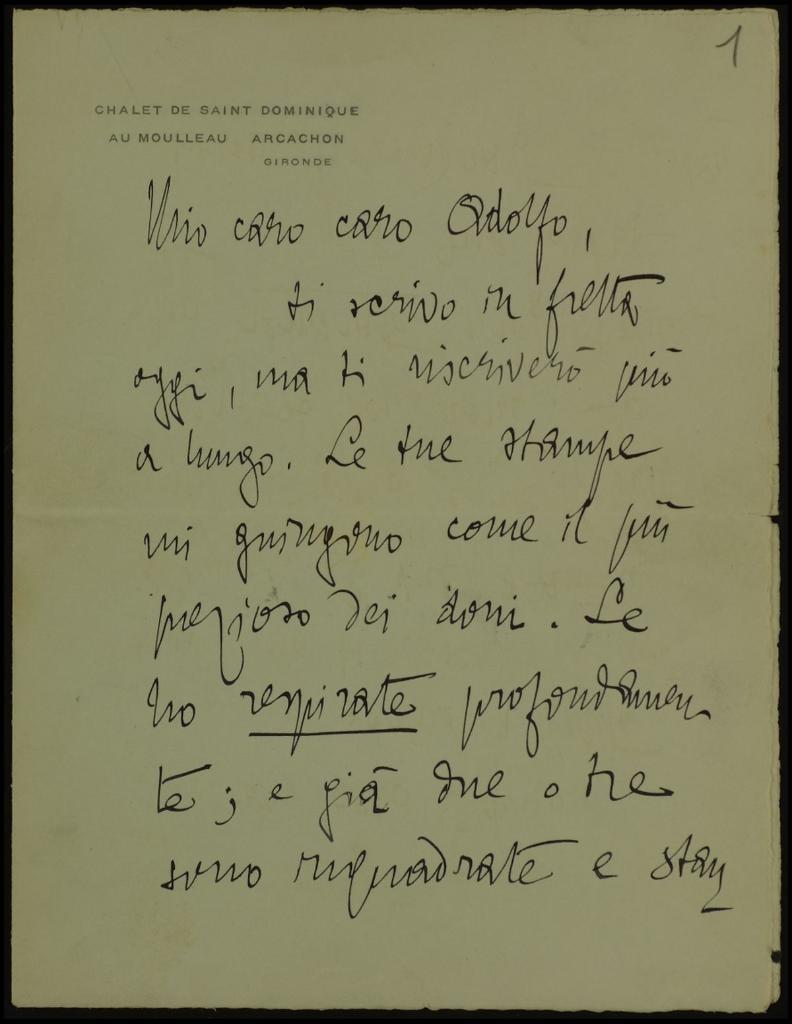 1
CHALET DE SAINT DOMINIQUE
AU MOULLEAU ARCACHON
GIRONDE
Mio caro caro Adolfo,
ti scrivo in fretta
oggi, ma ti riscriverò più
a lungo. Le tue stampe
mi giungono come il più
prezioso dei doni. Le
ho respirate profondamen
te; e già due o tre
sono inquadrate e stan